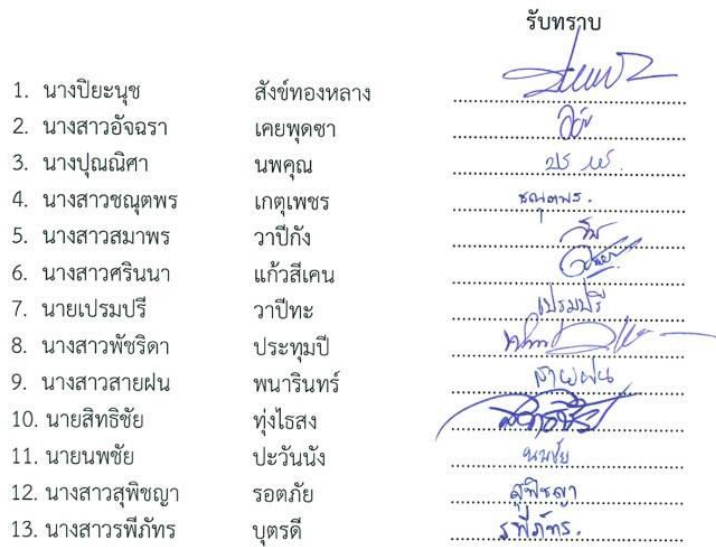 รับทราบ
1. นางปิยะนุช สังข์ทองหลาง
2. นางสาวอัจฉรา เคยพุดซา
3. นางปุณณิศา นพคุณ
4. นางสาวชณุตพร เกตุเพชร ชณุตพร.
5. นางสาวสมาพร วาปีกัง
6. นางสาวศรินนา แก้วสีเคน
7. นายเปรมปรี วาปีทะ เปรมปรี
8. นางสาวพัชริดา ประทุมปี
9. นางสาวสายฝน พนารินทร์ สายฝน
10. นายสิทธิชัย ทุ่งไธสง สิทธิชัย
11. นายนพชัย ปะวันนัง นพชัย
12. นางสาวสุพิชญา รอตภัย สุพิชญา
13. นางสาวรพีภัทร บุตรดี รพีภัทร.